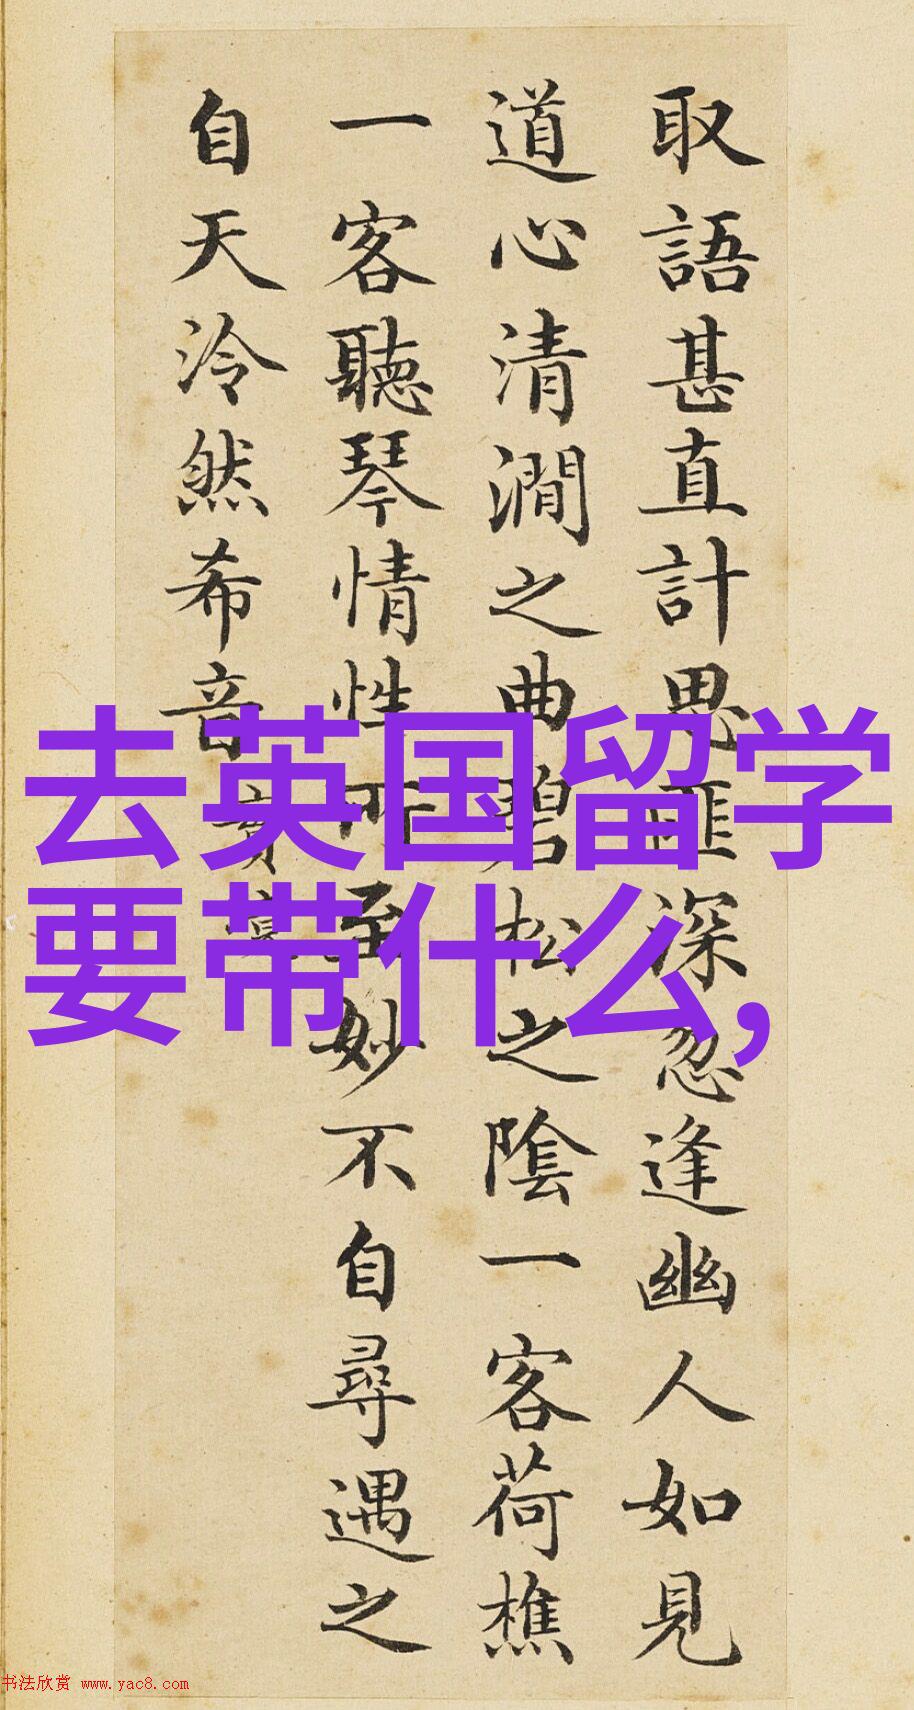 取語甚直計思匪深忽逢幽人如見
道心清澗之曲碧松之陰一客荷樵
一客聽琴情性所至妙不自尋遇之
自天泠然希音
去英国留学
要带什么,
书法欣赏 www.yac8.com